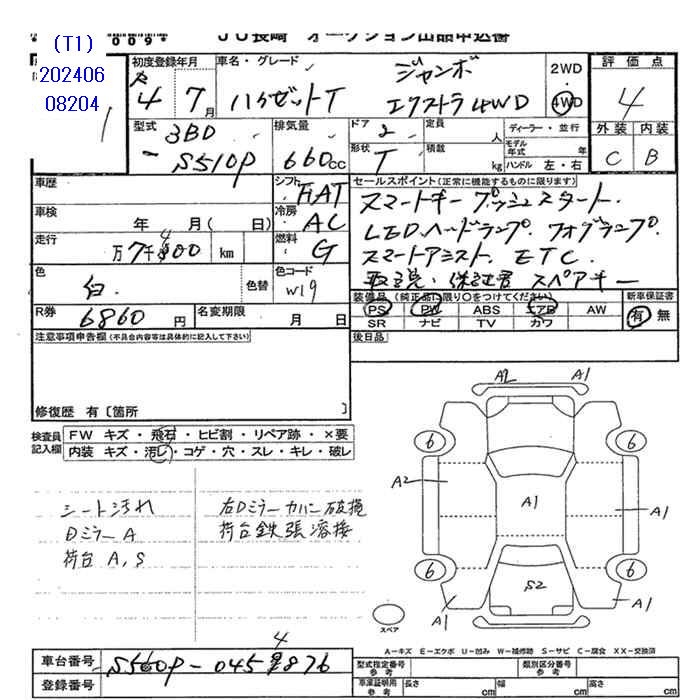 (T1)
202406
08204
009*
JU長崎 オークション出品申込書
初度登録年月
4 7月
車名・グレード
ハイゼットT ジャンボ
エクストラ 4WD
2WD
4WD
評価点
4
外装 内装
C B
型式
3BD
- S510P
排気量
660cc
ドア 2
形状 T
定員 人
積載 kg
ディーラー・並行
モデル年式 年
ハンドル 左・右
車歴
シフト FAT
車検 年 月( 日)
冷房 AC
走行 万7千400km
燃料 G
色 白 色替
色コード W19
R券 6860円
名変期限 月 日
セールスポイント(正常に機能するものに限ります)
スマートキー プッシュスタート.
LEDヘッドランプ. フォグランプ.
スマートアシスト. ETC.
取説・保証書 スペアキー
装備品(純正品に限り○をつけてください)
PS PW ABS エアB AW
SR ナビ TV カワ
新車保証書
有 無
後日品
注意事項申告欄(不具合内容等は具体的に記入して下さい)
修復歴 有〔箇所 〕
検査員記入欄
FW キズ・飛石・ヒビ割・リペア跡・×要
内装 キズ・汚レ・コゲ・穴・スレ・キレ・破レ
シート汚れ
Dミラー A
荷台 A, S
右Dミラーカバー破損
荷台鉄張溶接
A2 A1
6 6
A2 A1 A1
6 6
S2
A1 A1
スペア
A-キズ E-エクボ U-凹み W-補修跡 S-サビ C-腐食 XX-交換済
車台番号 S510P-0454876
登録番号
型式指定番号 参考
類別区分番号 参考
車庫証明用 参考 長さ cm 幅 cm 高さ cm